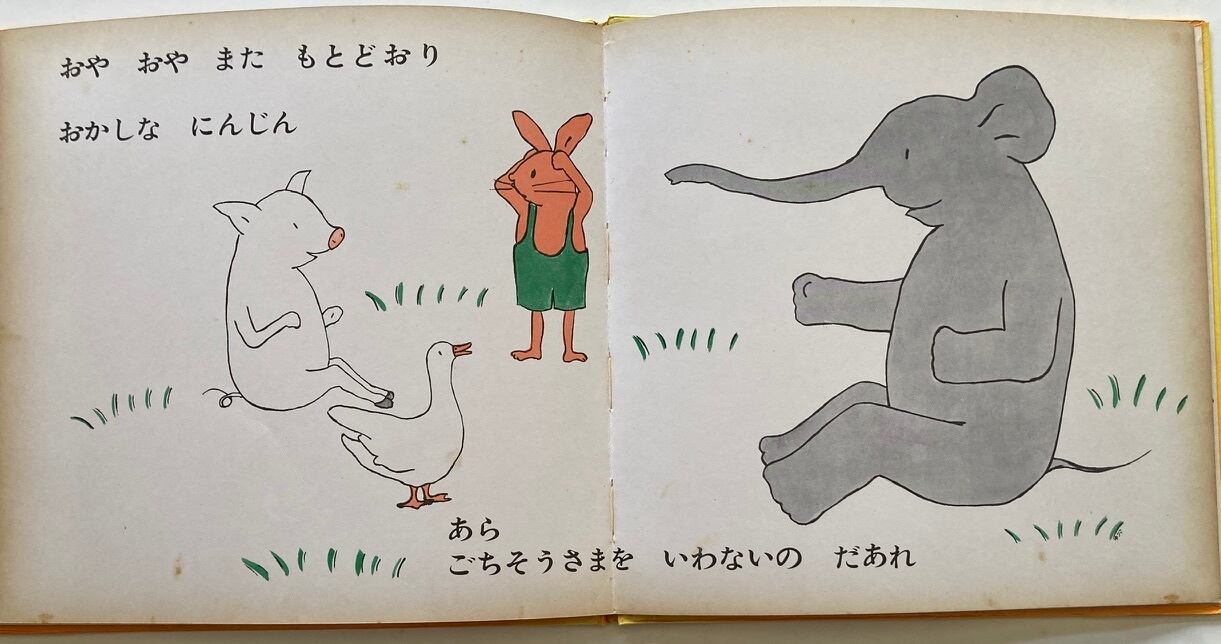 おや　おや　また　もとどおり
おかしな　にんじん
あら
ごちそうさまを　いわないの　だあれ